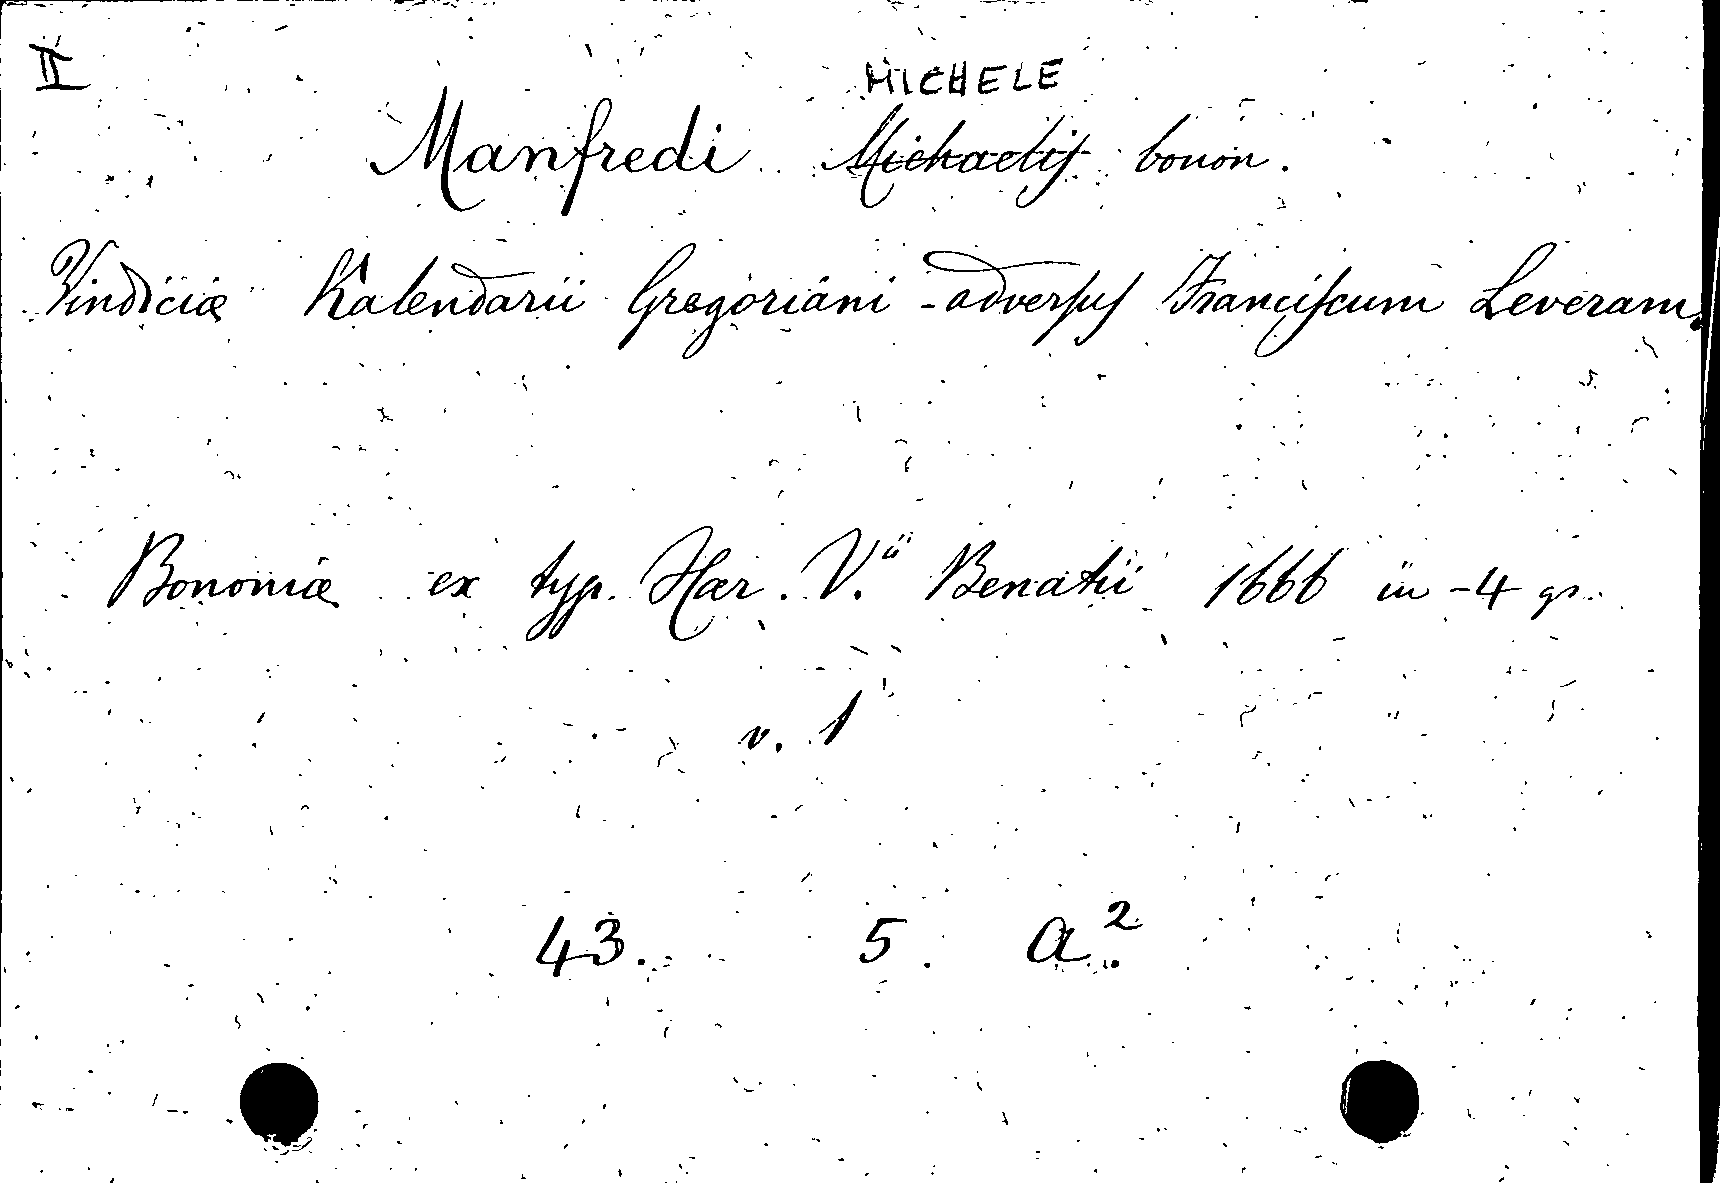 II
MICHELE
Manfredi Michaelis bonon.
Vindiciæ Kalendarii Gregoriani adversus Franciscum Leveram.
Bononiæ ex typ. Hær. V.ii Benatii 1666 in-4 gr.
v. 1
43. 5. a².